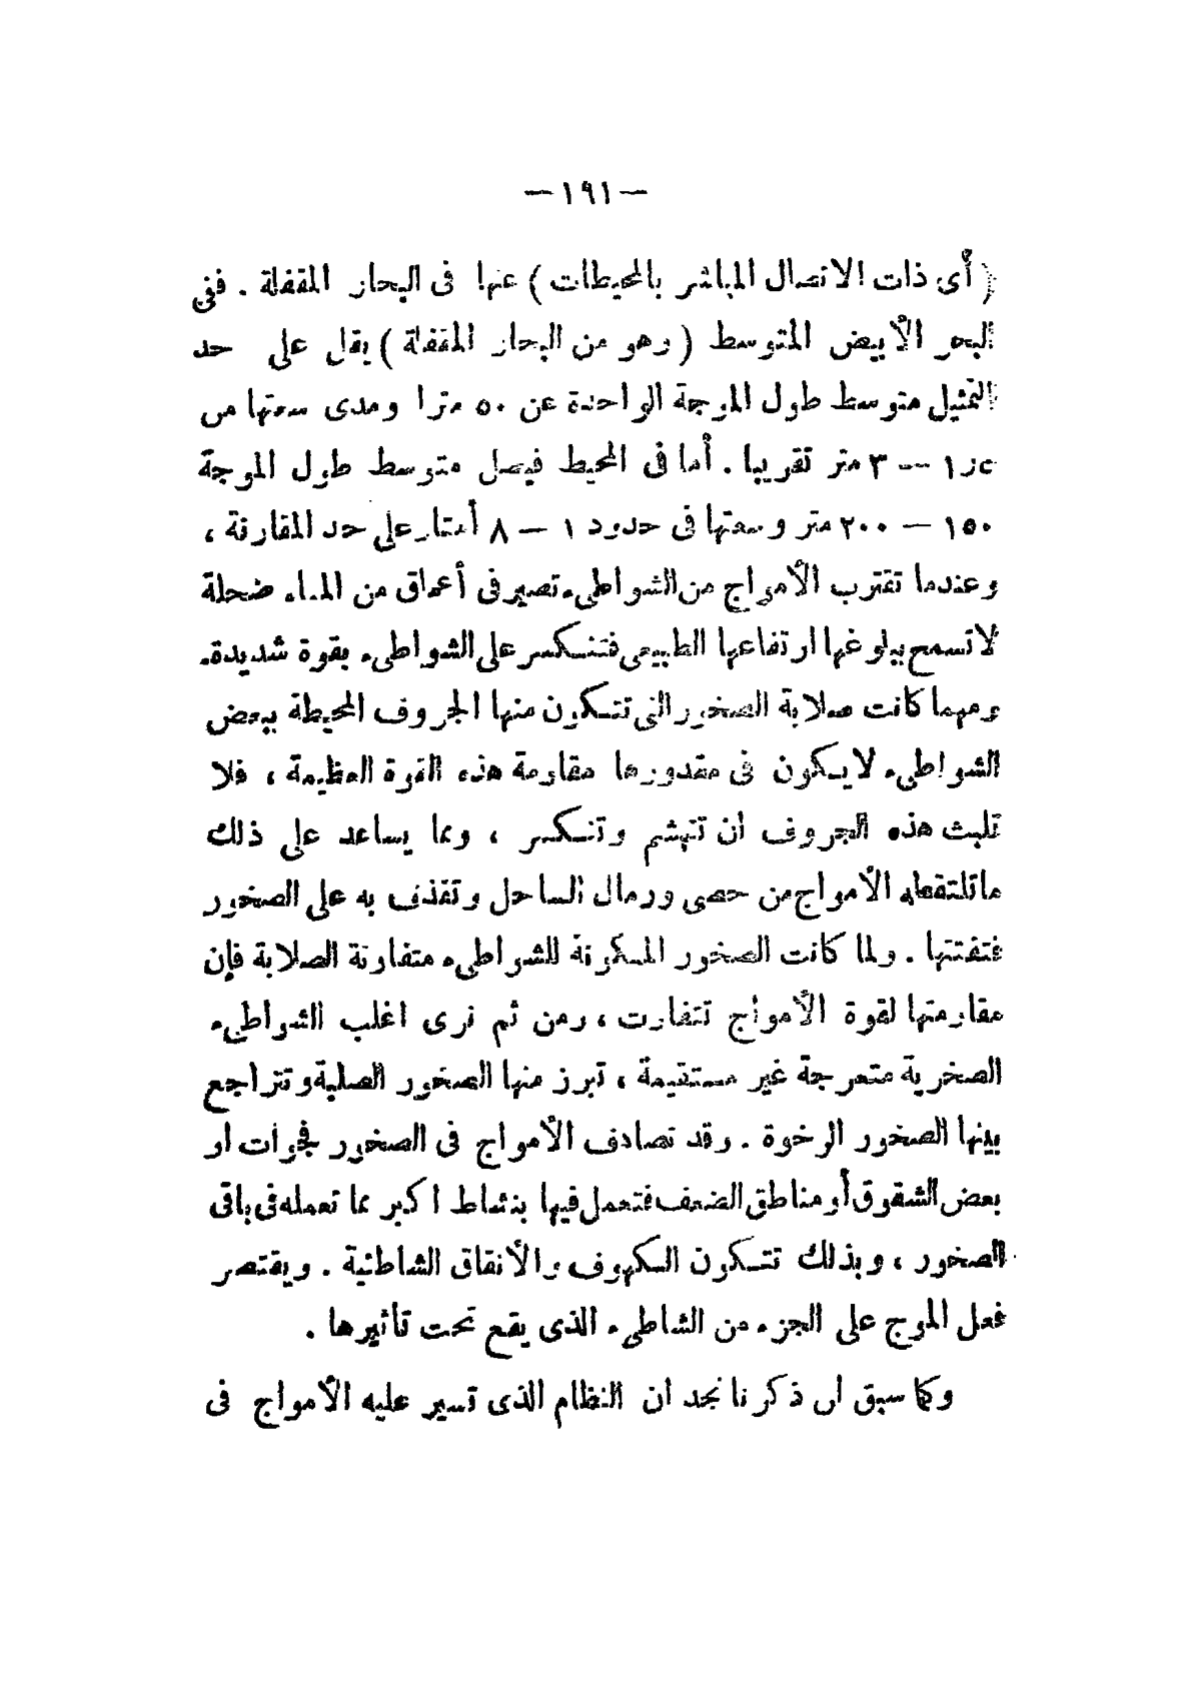 — ١٩١ —
( أى ذات الاتصال المباشر بالمحيطات ) عنها فى البحار المقفلة . ففى
البحر الأبيض المتوسط ( وهو من البحار المقفلة ) يقل على حد
التمثيل متوسط طول الموجة الواحدة عن ٥٠ مترا ومدى سعتها من
— ٣ متر تقريبا . أما فى المحيط فيصل متوسط طول الموجة
١٥٠ — ٢٠٠ متر وسعتها فى حدود ١ — ٨ أمتار على حد المقارنة ،
وعندما تقترب الأمواج من الشواطىء تصير فى أعماق من الماء ضحلة
لا تسمح ببلوغها ارتفاعها الطبيعى فتنكسر على الشواطىء بقوة شديدة.
ومهما كانت صلابة الصخور التى تتكون منها الجروف المحيطة ببعض
الشواطىء لا يكون فى مقدورها مقاومة هذه القوة العظيمة ، فلا
تلبث هذه الجروف أن تتهشم وتنكسر ، ومما يساعد على ذلك
ما تلتقطه الأمواج من حصى ورمال الساحل وتقذف به على الصخور
فتفتتها . ولما كانت الصخور المكونة للشواطىء متفاوتة الصلابة فإن
مقاومتها لقوة الأمواج تتفاوت ، ومن ثم نرى اغلب الشواطىء
الصخرية متعرجة غير مستقيمة ، تبرز منها الصخور الصلبة وتتراجع
بينها الصخور الرخوة . وقد تصادف الأمواج فى الصخور فجوات او
بعض الشقوق أو مناطق الضعف فتعمل فيها بنشاط اكبر مما تعمله فى باقى
الصخور ، وبذلك تتكون الكهوف والأنفاق الشاطئية . ويقتصر
فعل الموج على الجزء من الشاطىء الذى يقع تحت تأثيرها .
وكما سبق ان ذكرنا نجد ان النظام الذى تسير عليه الأمواج فى